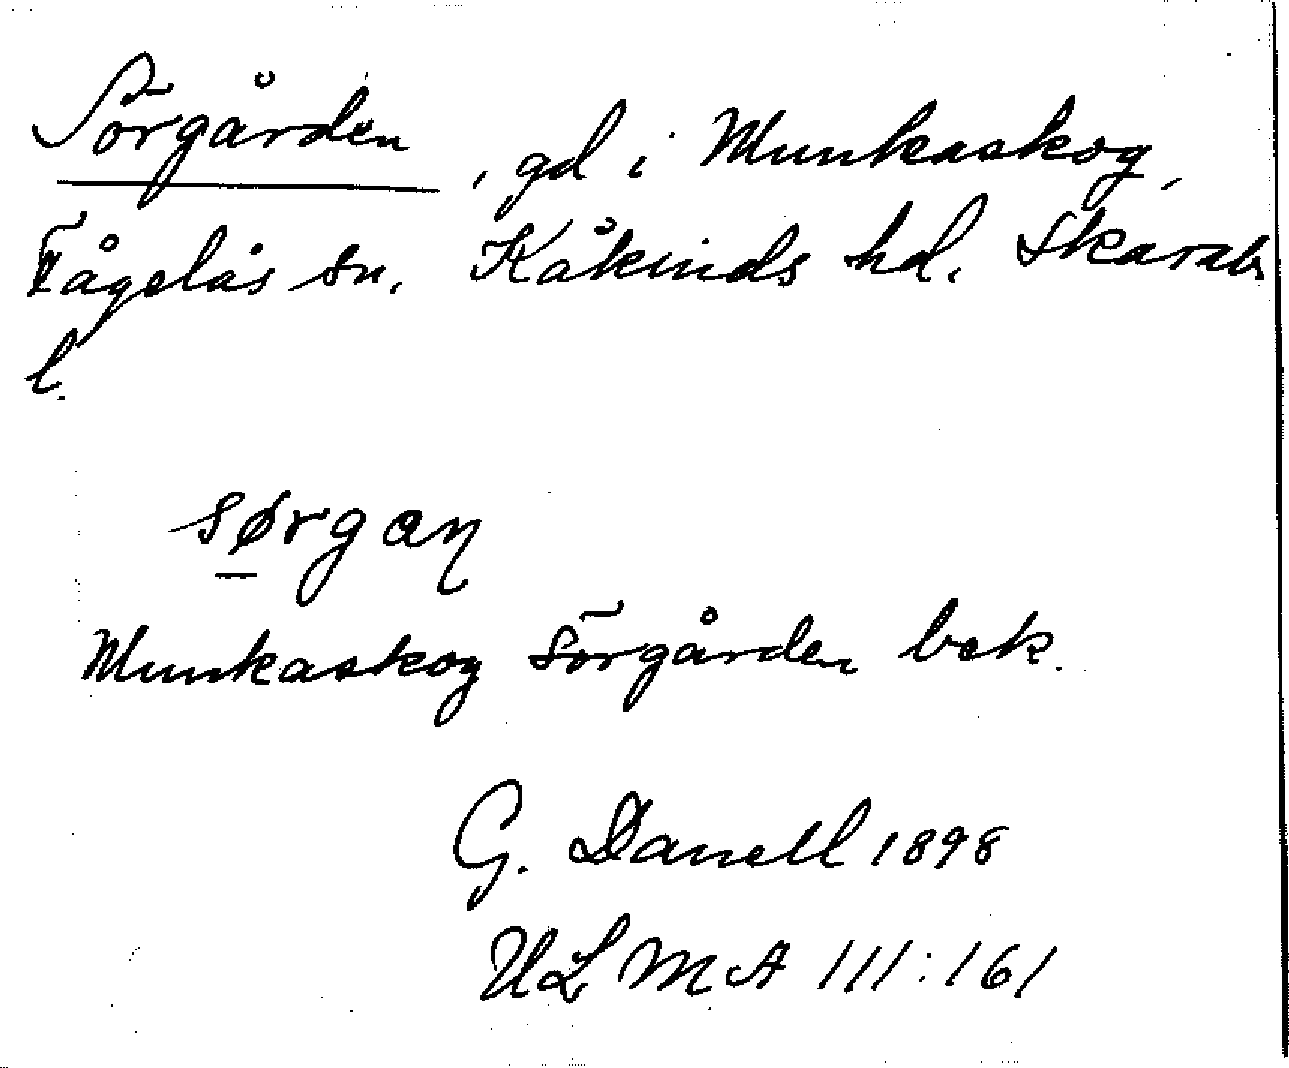 Sörgården, gd i Munkaskog,
Fågelås sn. Kåkinds hd. Skarab.
l.
sørgaɳ
Munkaskog Sörgården bek.
G. Danell 1898
ULMA 111:161